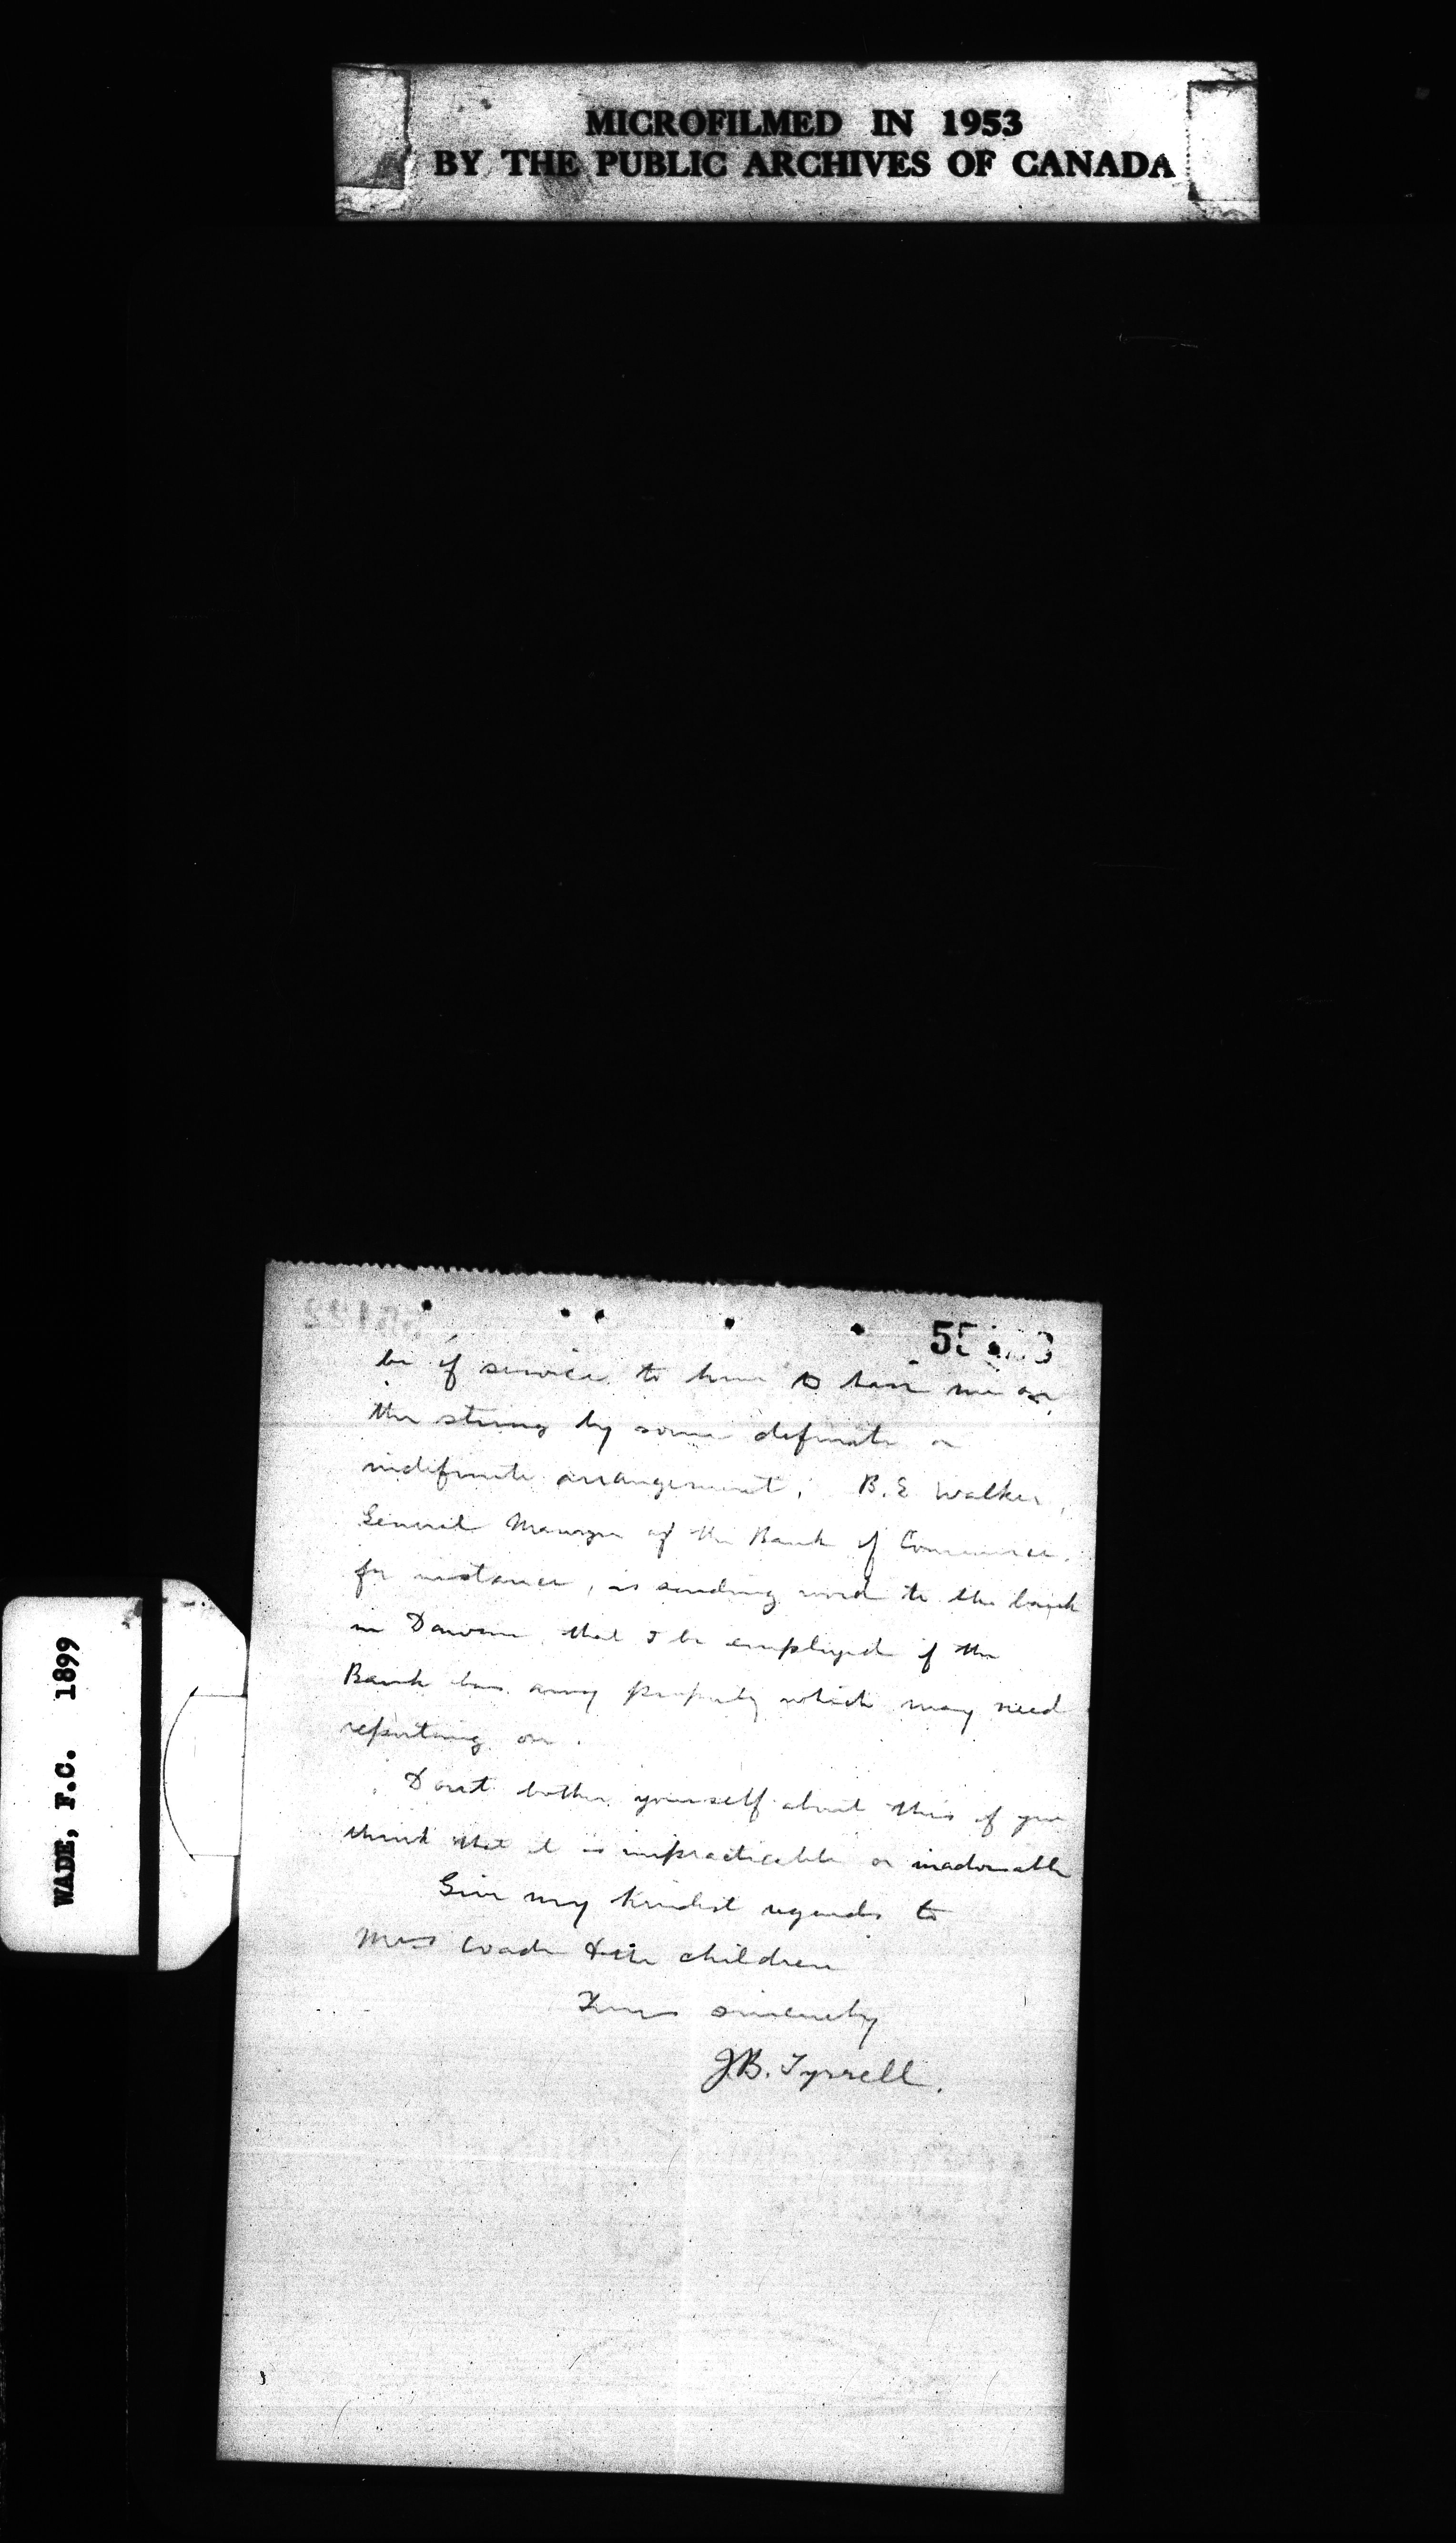 MICROFILMED IN 1953
BY THE PUBLIC ARCHIVES OF CANADA
WADE, F.C. 1899
be of service to him to have me on
the string by some definite or
indefinite arrangement. B.E. Walker,
General Manager of the Bank of Commerce,
for instance, is sending word to the bank
in Dawson that I be employed if the
Bank has any property which may need
reporting on.
Dont bother yourself about this if you
think that it is impracticable or inadvisable
Give my kindest regards to
Mrs Wade & the children
Yours sincerely
J.B. Tyrrell.